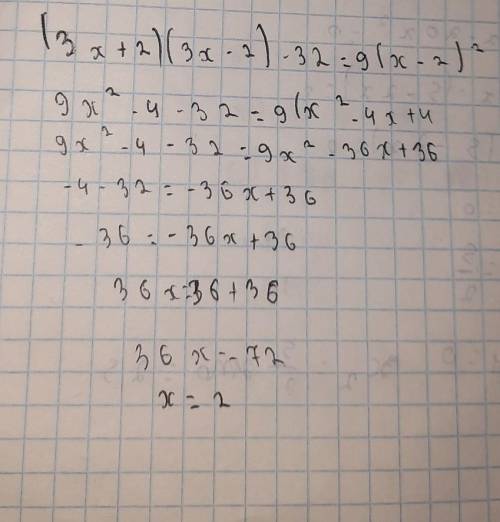 (3x+2)(3x-2)-32=9(x-2)²
9x²-4-32=9(x²-4x+4
9x²-4-32=9x²-36x+36
-4-32=-36x+36
-36=-36x+36
36x=36+36
36x=72
x=2